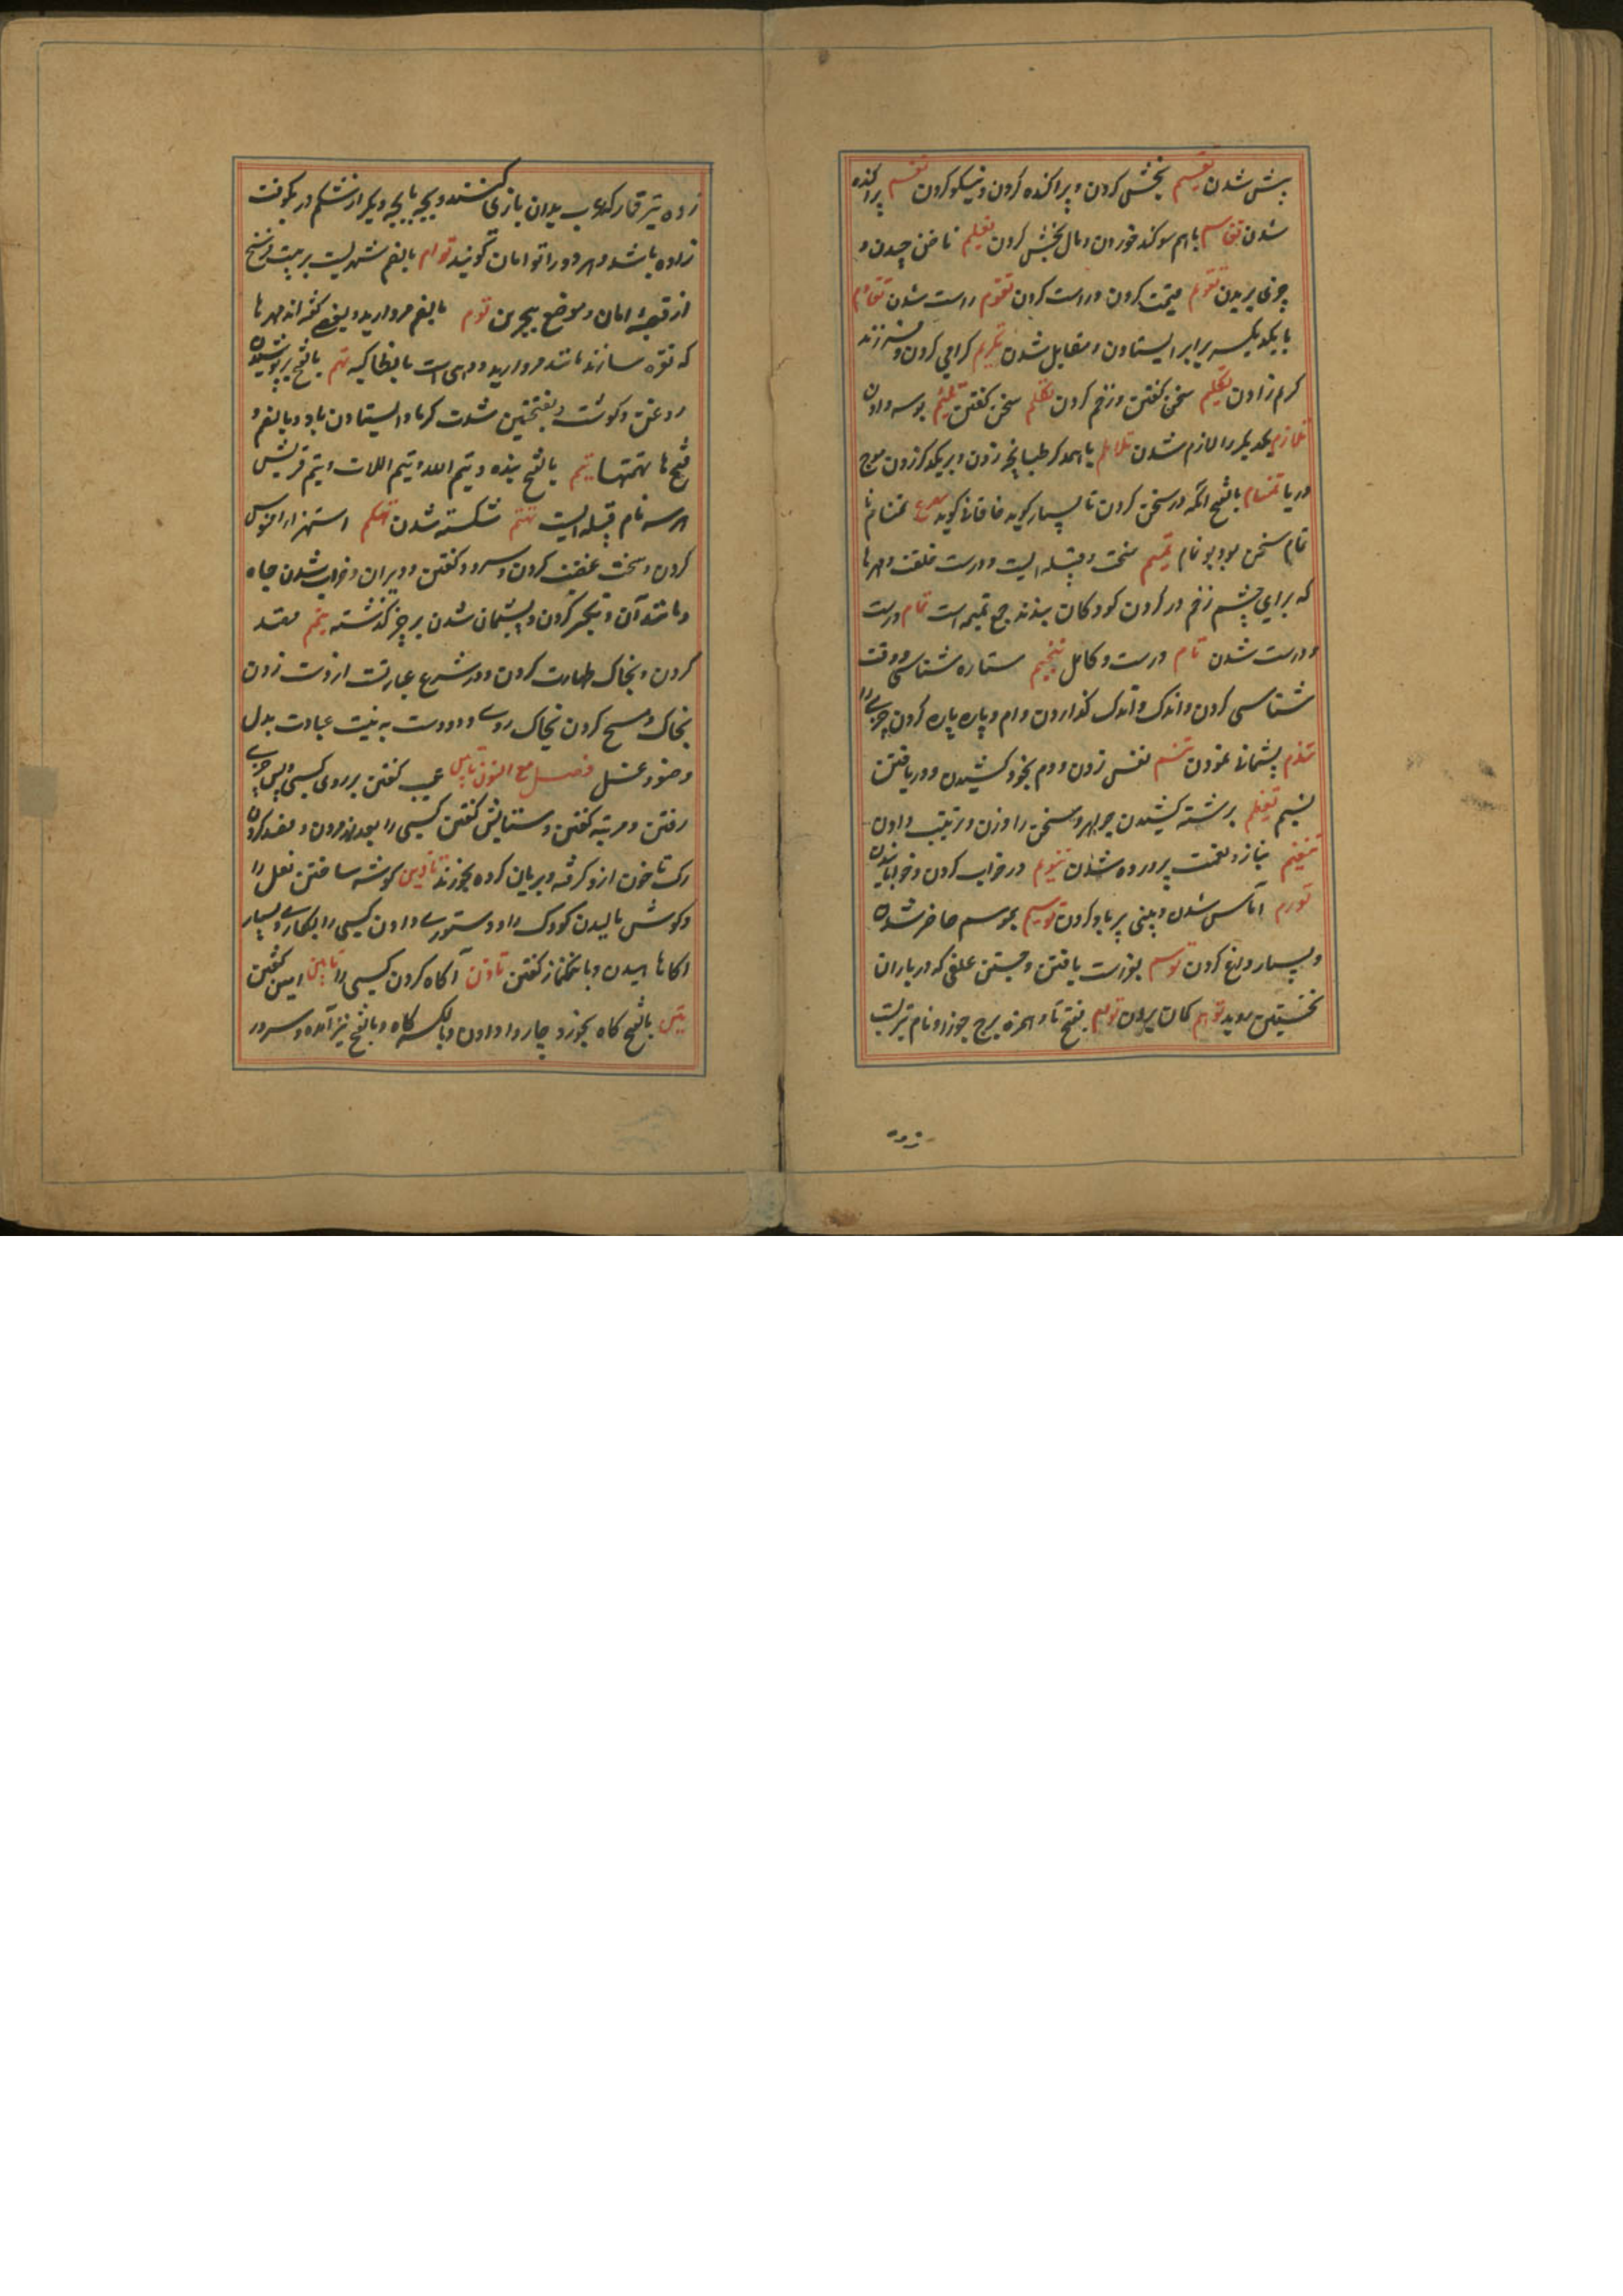 پش شدن تقسیم بخش کردن و پراکنده کردن و نیکو کردن تقسم پراکنده
شدن تقاسم باهم سوکند خوردن و مال بخش کردن تقلیم ناخن چیدن و
چوب بریدن تقویم قیمت کردن و راست کردن تقوم راست شدن تقاوم
با یکدیگر برابر ایستادن و مقابل شدن تکریم کرامی کردن و فرزند
کرام زادن تکلیم سخن کفتن و زخم کردن تکلم سخن کفتن تلثیم بوسه دادن
تلازم یکدیگر را لازم شدن تلاطم باهمدکر طبانچه زدن و بر یکدکر زدن موج
دریا تمتام بالفتح انکه در سخن کردن تا بسیار کوید خاقانی کوید مصرع تمتام نا
تمام سخن بود بو تمام تمیم سخت و قبیله ایست و درست خلقت و مهرها
که برای چشم زخم در کردن کودکان بندند جمع تمیمه است تمام درست
و درست شدن تام درست و کامل تنجیم ستاره شناسی و وقت
شناسی کردن و اندک و اندک کذاردن وام و پاره پاره کردن چیزی را
تندم پشیمانی نمودن تنسم نفس زدن و دم بخود کشیدن و دریافتن
نسیم تنظیم برشته کشیدن جواهر و سخن را وزن و ترتیب دادن
تنعیم بناز و نعمت پرورده شدن تنویم در خواب کردن و خوابانیدن
تورم آماس شدن و بینی پرباد کردن توسیم بموسم حاضر شدن
و بسیار داغ کردن توسم بفراست یافتن و جستن علفی که در باران
نخستین روید توهم کمان بردن توءم بفتح تا و همزه برج جوزا و نام تیریست
زده
زده تیر قمار که عرب بدان بازی کنند و بچه با بچه دیکر از شکم در یکوقت
زاده باشد و هر دو را توامان کویند توام بالضم شهریست بر بیست فرسخ
از قصبه امان و موضع ببحرین توم بالضم مروارید و بعضی کفته اند مهرها
که نقره سازند مانند مروارید و دهی است بانطاکیه تهم بالفتح پر پوشیدن
روغن و کوشت و بفتحتین شدت کرما و ایستادن باد و بالضم و
فتح ها تهمتها تیم بالفتح بنده و تیم الله و تیم اللات و تیم قریش
هر سه نام قبیله ایست تهتم شکسته شدن تهکم استهزا و افسوس
کردن و سخت غضب کردن و سرود کفتن و ویران و خراب شدن چاه
و مانند آن و تکبر کردن و پشیمان شدن بر چیز کذشته تیمم قصد
کردن و بخاک طهارت کردن و در شرع عبارتست از دست زدن
بخاک و مسح کردن بخاک روی و دو دست به نیت عبادت بدل
وضو و غسل فصل مع النون تابین عیب کفتن بر روی کسی و پس چیزی
رفتن و مرثیه کفتن و ستایش کفتن کسی را بعد از مردن و فصد کردن
رک تا خون ازو کرفته و بریان کرده بخورند تاذین کوشه ساختن نعل را
و کوش مالیدن کودک را و دستوری دادن کسی را بکاری و بسیار
اکاهانیدن و بانک نماز کفتن تاذن آکاه کردن کسی را تامین امین کفتن
تبن بالفتح کاه بخورد چاروا دادن و بالکسر کاه و بالفتح نیز آمده و سرور